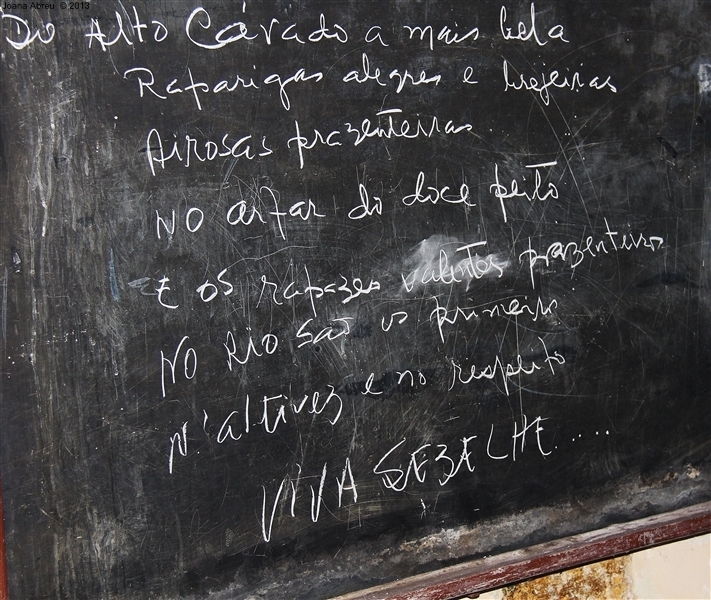 Joana Abreu © 2013
Do Alto Cávado a mais bela
Raparigas alegres e brejeiras
Airosas prazenteiras
NO arfar do doce peito
E os rapazes valentes prazenteiros
NO Rio são os primeiros
N'altivez e no respeito
VIVA SEZELHE.....